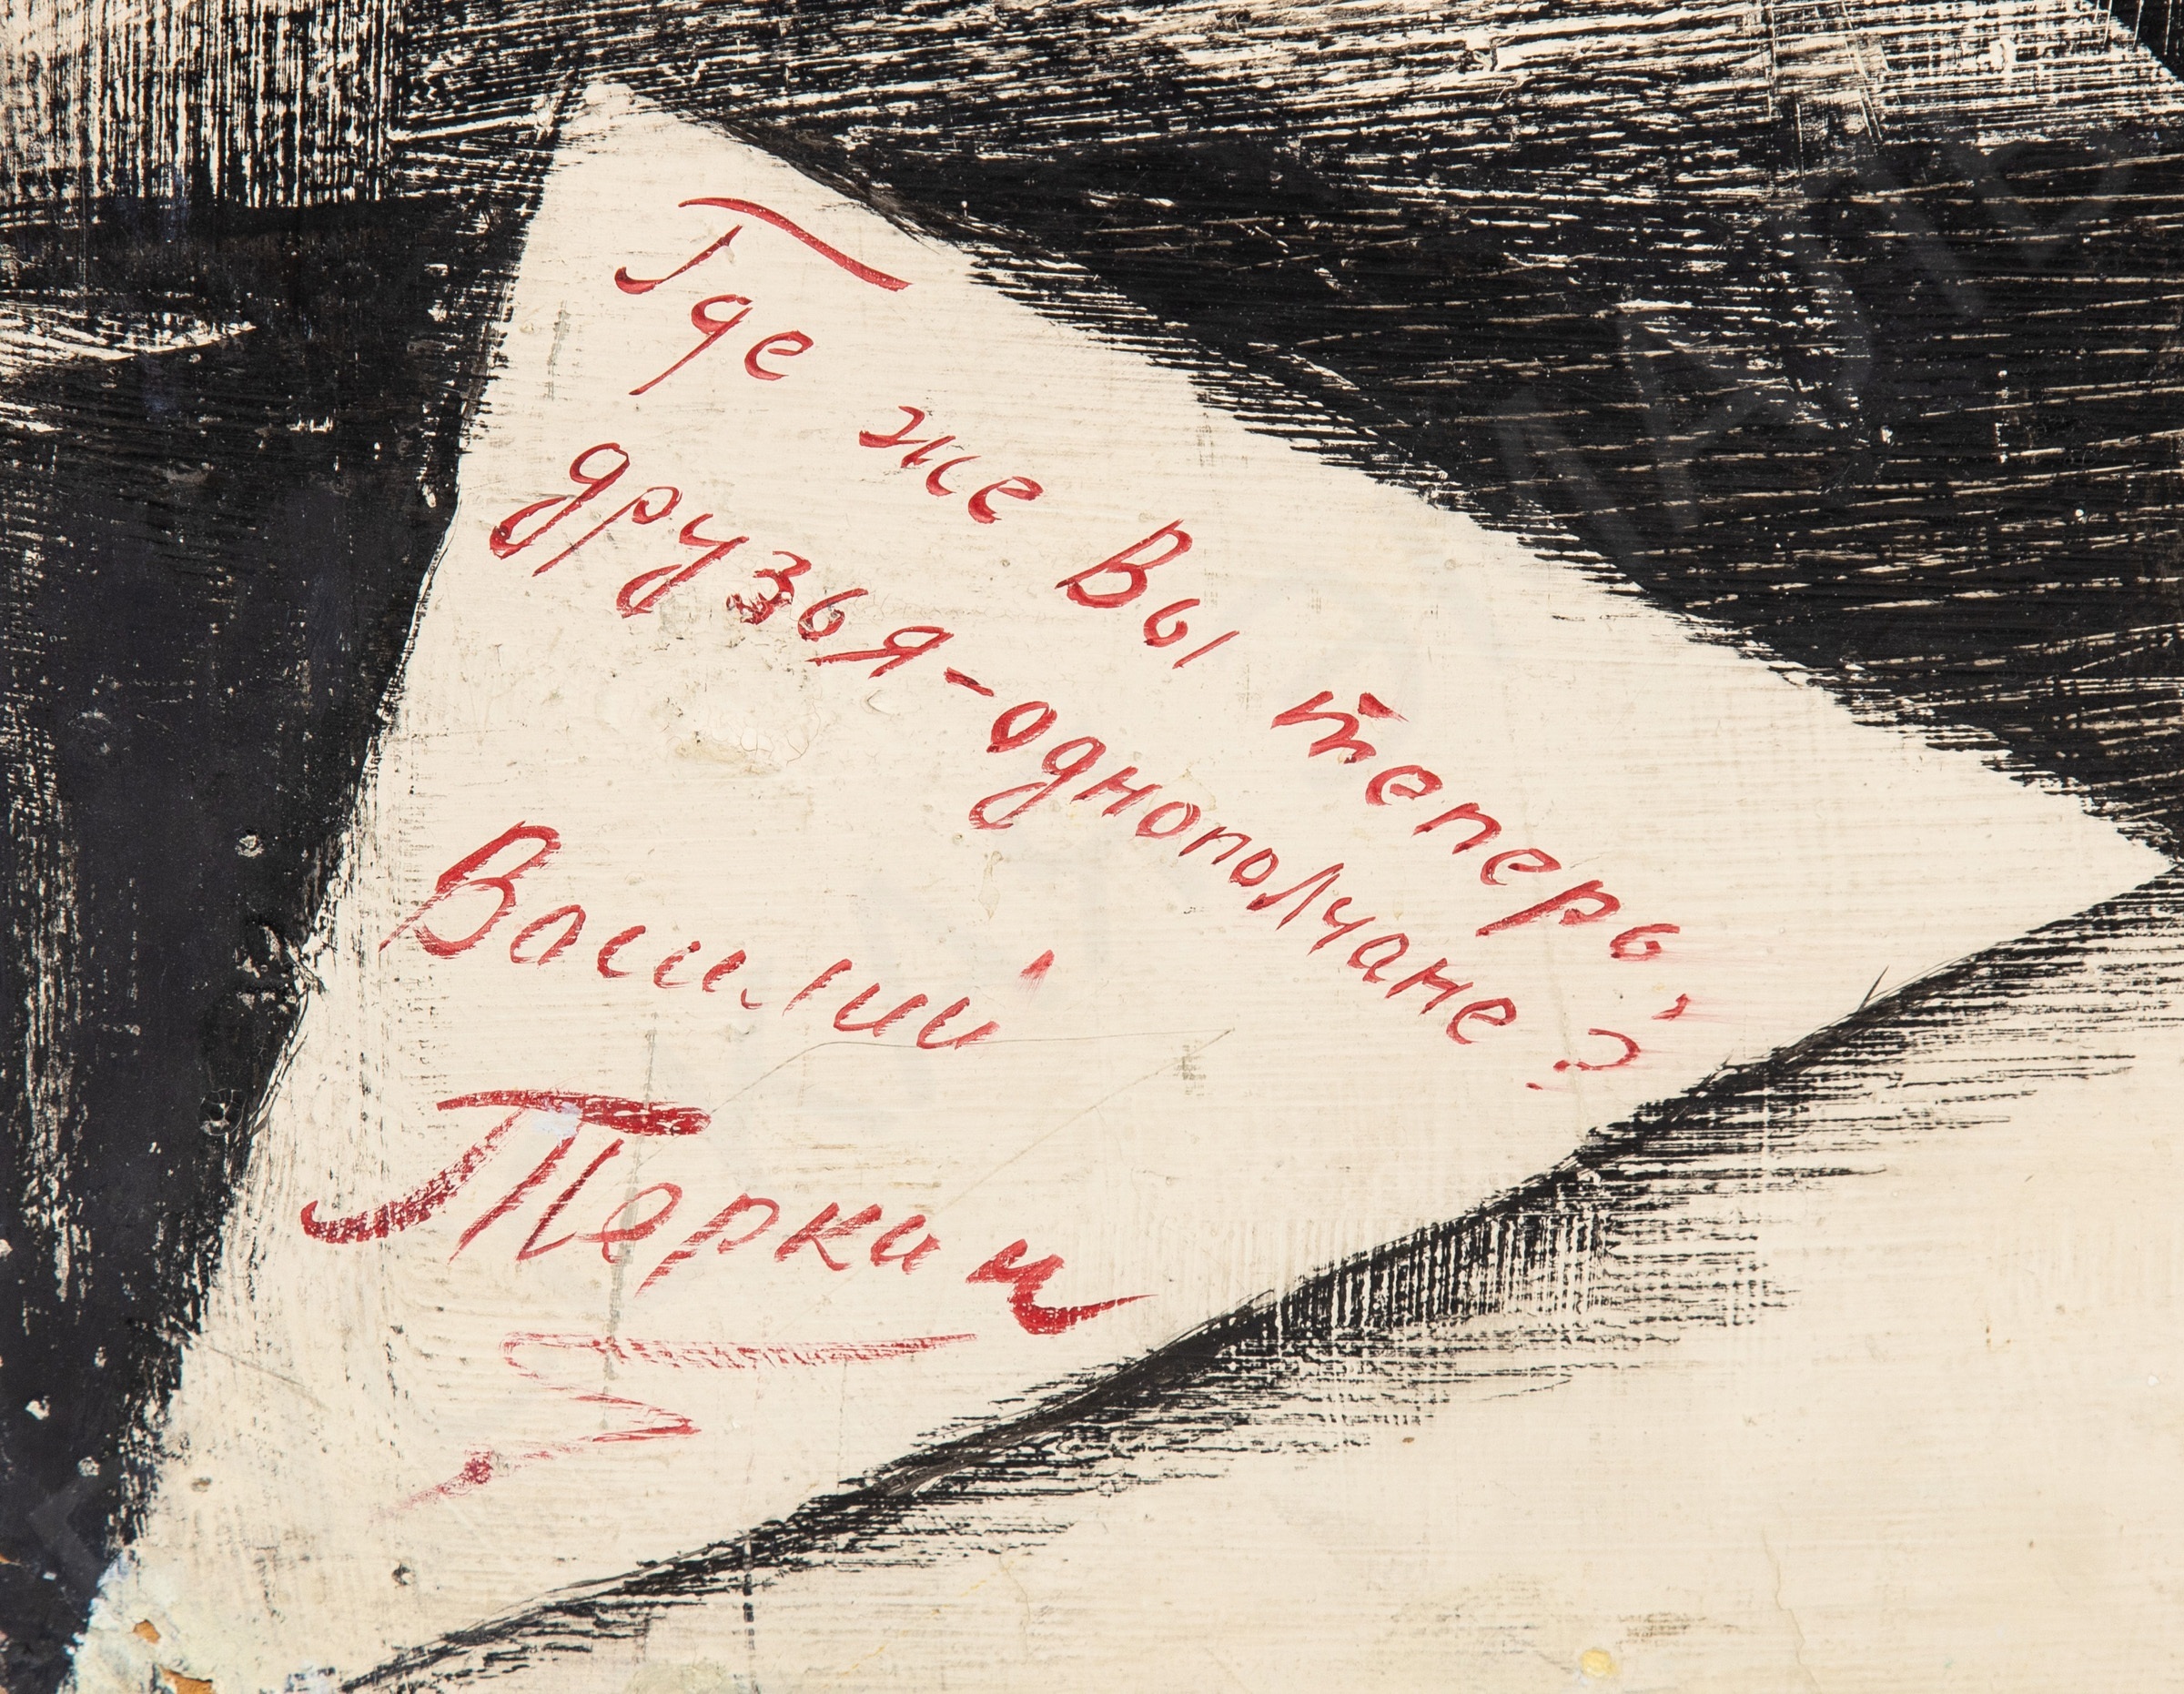 Где же Вы теперь,
друзья-однополчане?
Василий
Теркин